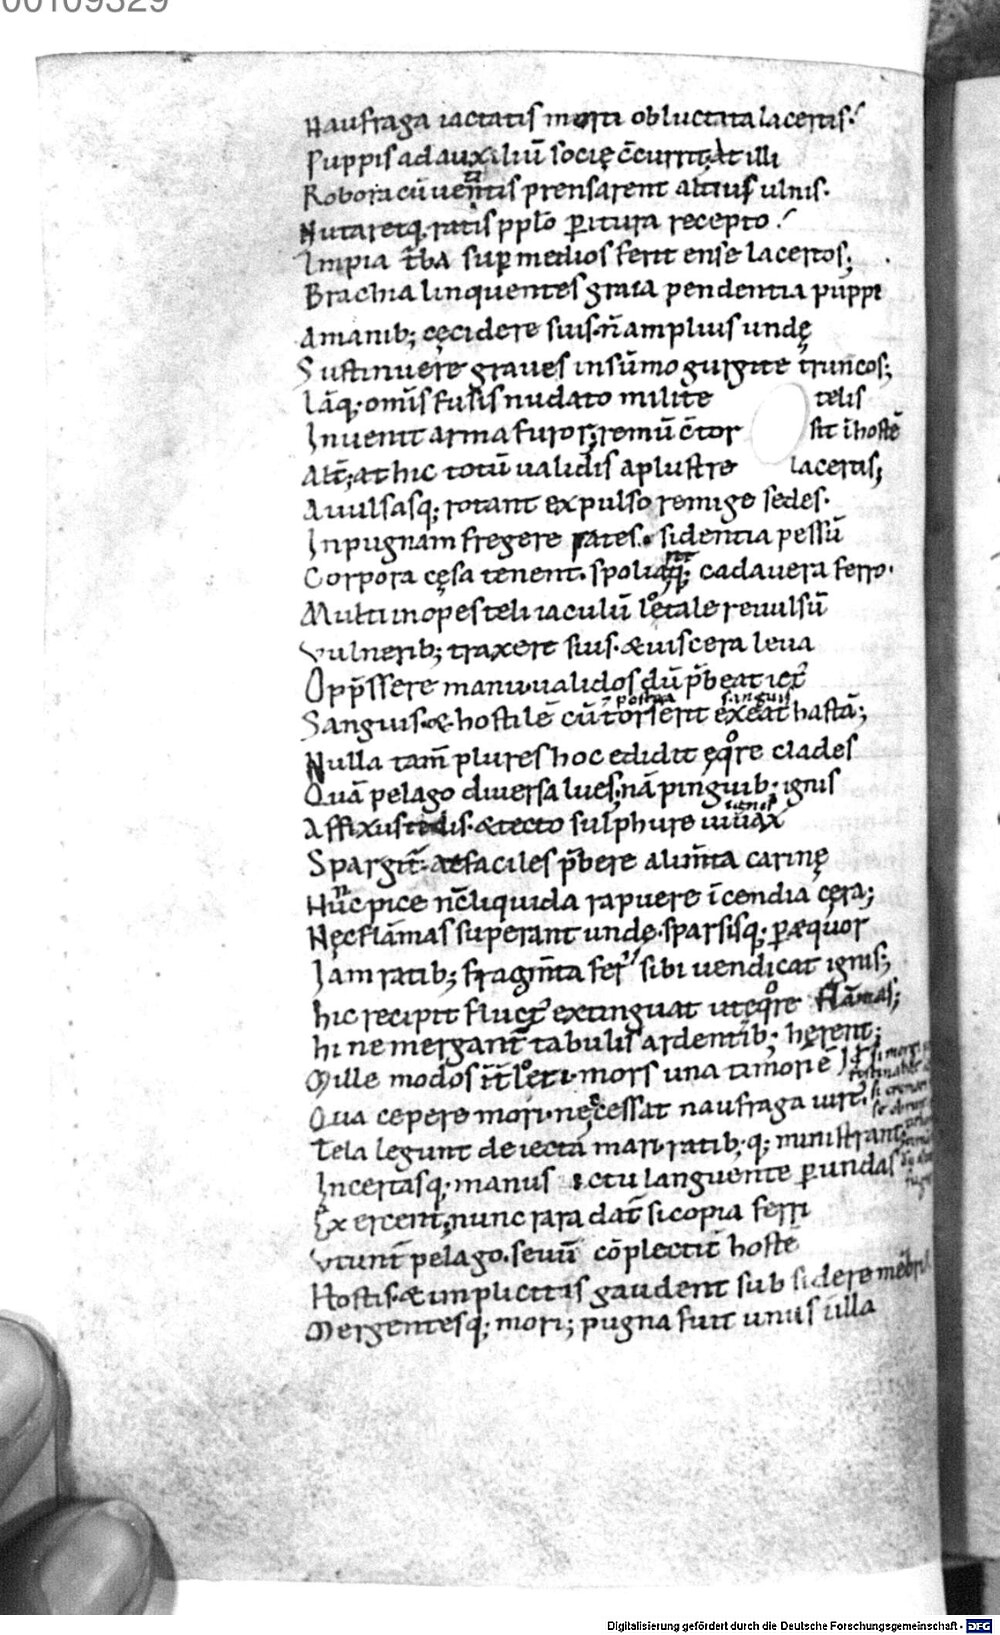 00109329
Naufraga iactatis morti obluctata lacertis.
Puppis ad auxiliū socię c̄currit; At illi
Robora cū uetitis prensarent altius ulnis.
Nutaretq; ratis pplo peritura recepto.
Impia t̄ba sup medios ferit ense lacertos;
Brachia linquentes graia pendentia puppi
A manib; cęcidere suis. n̄ amplius undę
Sustinuere graues in sūmo gurgite truncos;
Iāq; omīs fusis nudato milite telis
Inuenit arma furor; remū c̄tor sit ī hostē
Alt̄; at hic totū ualidis aplustre lacertis;
Auulsasq; rotant expulso remige sedes.
In pugnam fregere rates. sidentia pessū
Corpora cęsa tenent. spoliantq; cadauera ferro.
Multi inopes teli iaculū letale reuulsū
Vulnerib; traxere suis. & uiscera leua
Opp̄ssere manu. ualidos dū p̄beat ict'
Sanguis. & hostilē cū torserit exeat hastā;
Nulla tam̄ plures hoc edidit ęqore clades
Quā pelago diuersa lues; nā pinguib; ignis
Affixus tedis. & tecto sulphure uiuax
Spargit̄. at faciles p̄bere alim̄ta carinę
Nūc pice nc̄ liquida rapuere īcendia cęra;
Nęc flāmas superant undę. sparsisq; p æquor
Iam ratib; fragm̄ta fer' sibi uendicat ignis;
hic recipit fluct' extinguat ut ęqore flāmas;
hi ne mergant̄ tabulis ardentib; hęrent;
Mille modos īt̄ leti. mors una timori ē
Qua cepere mori. nęc cessat naufraga uirt'.
Tela legunt deiecta mari. ratib; q; ministrant.
Incertasq; manus ictu languente p undas
Exercent; nunc rara dat̄ si copia ferri
Vtunt̄ pelago. seuū cōplectit̄ hostē
Hostis. & implicitis gaudent sub sidere mēbris
Mergentesq; mori; pugna fuit unus illa
Digitalisierung gefördert durch die Deutsche Forschungsgemeinschaft - DFG